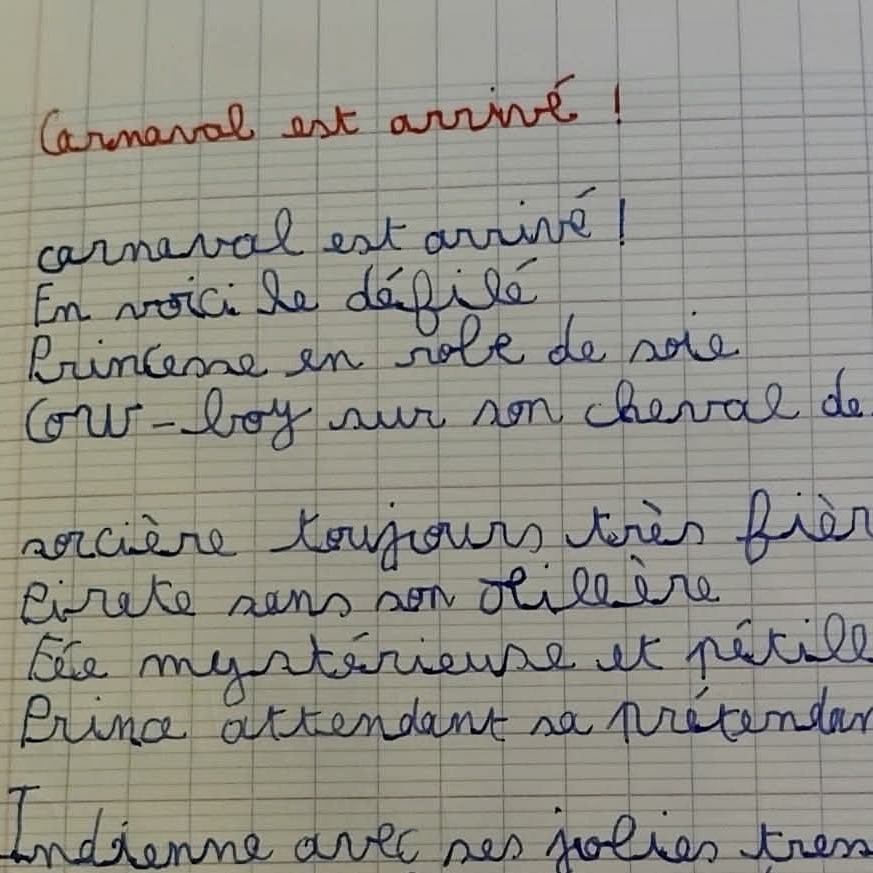 Carnaval est arrivé !
carnaval est arrivé !
En voici le défilé
Princesse en robe de soie
Cow-boy sur son cheval de
sorcière toujours très fièr
Pirate sans son œillère
Fée mystérieuse et pétill
Prince attendant sa prétendan
Indienne avec ses jolies tress